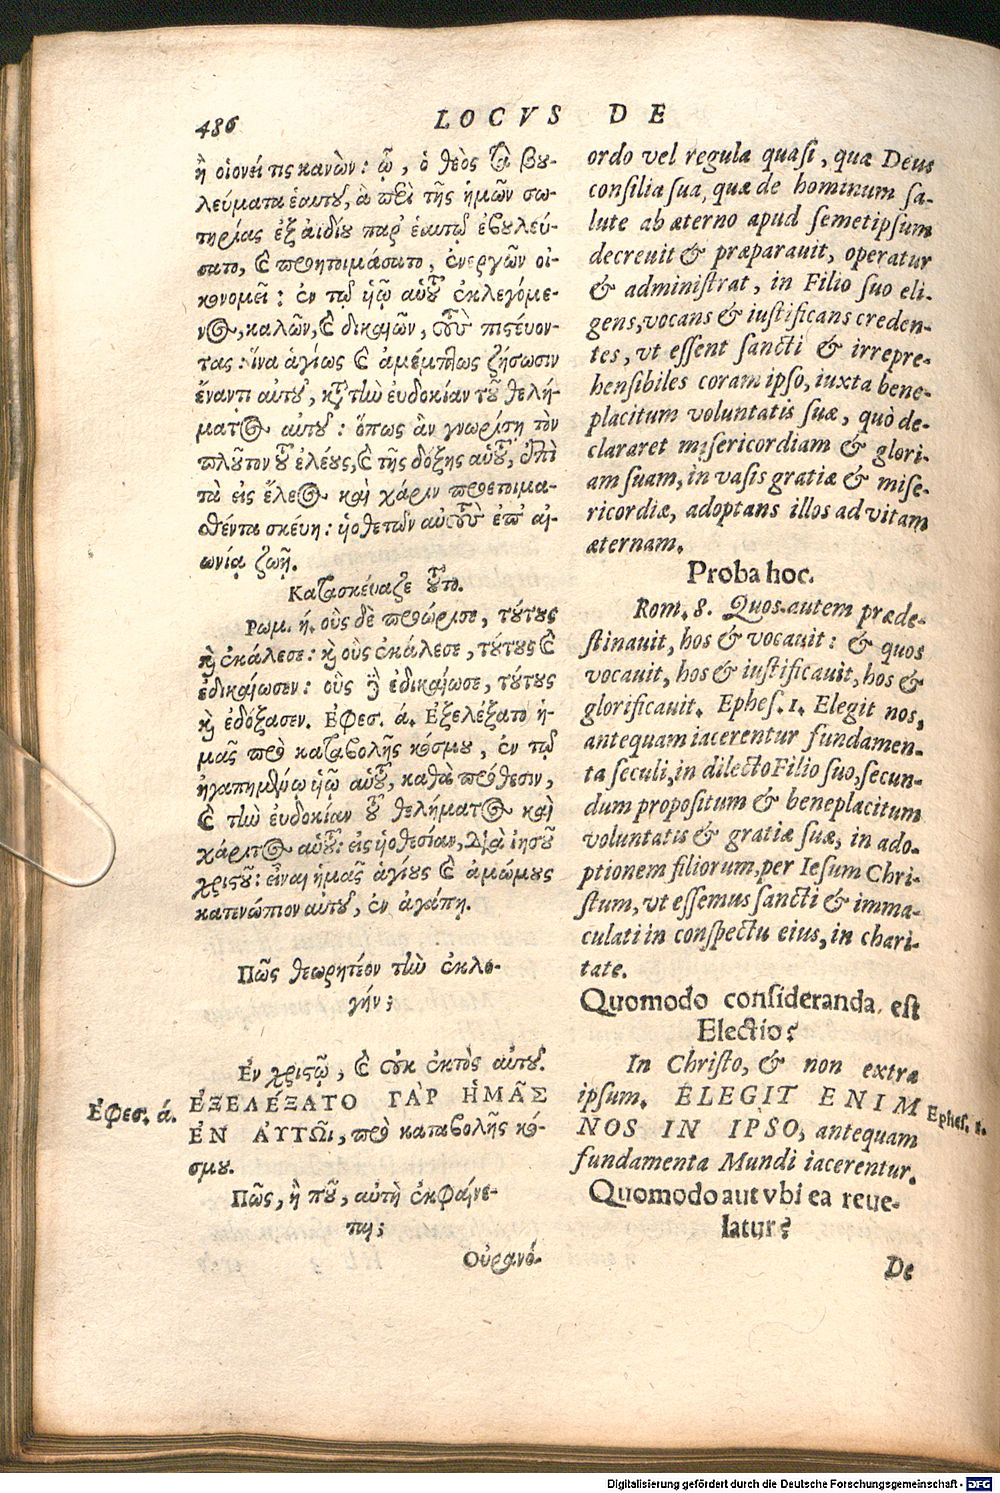 486
LOCVS DE
ἢ οἱονεί τις κανών: ᾧ, ὁ θεὸς τὰ βου-
λεύματα ἑαυτοῦ, ἃ περὶ τῆς ἡμῶν σω-
τηρίας ἐξ ἀϊδίου παρ' ἑαυτῷ ἐβουλεύ-
σατο, καὶ προητοιμάσατο, ἐνεργῶν οἰ-
κονομεῖ: ἐν τῷ ὑῷ αὑτοῦ ἐκλεγόμε-
νος, καλῶν, καὶ δικαιῶν, τοὺς πιστεύον-
τας: ἵνα ἁγίως καὶ ἀμέμπτως ζήσωσιν
ἔναντι αὐτοῦ, κατὰ τὴν ἐυδοκίαν τοῦ θελή-
ματος αὐτοῦ: ὅπως ἂν γνωρίσῃ τὸν
πλοῦτον τοῦ ἐλέους, καὶ τῆς δόξης αὑτοῦ, ἐπὶ
τὰ εἰς ἔλεος καὶ χάριν προετοιμα-
σθέντα σκέυη: ὑοθετῶν αὐτοὺς ἐπ' αἰ-
ωνίᾳ ζωῇ.
Κατασκέυαζε τοῦτο.
Ρωμ. ή. οὓς δὲ προώρισε, τούτους
καὶ ἐκάλεσε: καὶ οὓς ἐκάλεσε, τούτους καὶ
ἐδικαίωσεν: οὓς δὲ ἐδικαίωσε, τούτους
καὶ ἐδόξασεν. Εφεσ. ά. Εξελέξατο ἡ-
μᾶς πρὸ καταβολῆς κόσμου, ἐν τῷ
ἠγαπημένῳ ὑῷ αὑτοῦ, κατὰ πρόθεσιν,
καὶ τὴν ἐυδοκίαν τοῦ θελήματος καὶ
χάριτος αὑτοῦ: εἰς ὑοθεσίαν, διὰ ἰησοῦ
χριστοῦ: εἶναι ἡμᾶς ἁγίους καὶ ἀμώμους
κατενώπιον αὐτοῦ, ἐν ἀγάπῃ.
Πῶς θεωρητέον τὴν ἐκλο-
γήν;
Εν χριστῷ, καὶ οὐκ ἐκτὸς αὐτοῦ.
ΕΞΕΛΕΞΑΤΟ ΓᾺΡ ἩΜΑ͂Σ
ἘΝ ἈΥΤΩ͂Ι, πρὸ καταβολῆς κό-
σμου.
Εφεσ. ά.
Πῶς, ἢ ποῦ, αὐτὴ ἐκφαίνε-
ται;
Οὐρανό-
ordo vel regula quasi, qua Deus
consilia sua, quæ de hominum sa-
lute ab æterno apud semetipsum
decreuit & præparauit, operatur
& administrat, in Filio suo eli-
gens, vocans & iustificans creden-
tes, vt essent sancti & irrepre-
hensibiles coram ipso, iuxta bene-
placitum voluntatis suæ, quò de-
clararet misericordiam & glori-
am suam, in vasis gratiæ & mise-
ricordiæ, adoptans illos ad vitam
æternam.
Proba hoc.
Rom. 8. Quos autem præde-
stinauit, hos & vocauit: & quos
vocauit, hos & iustificauit, hos &
glorificauit. Ephes. 1. Elegit nos,
antequam iacerentur fundamen-
ta seculi, in dilecto Filio suo, secun-
dum propositum & beneplacitum
voluntatis & gratiæ suæ, in ado-
ptionem filiorum, per Iesum Chri-
stum, vt essemus sancti & imma-
culati in conspectu eius, in chari-
tate.
Quomodo consideranda est
Electio?
In Christo, & non extra
ipsum. ELEGIT ENIM
NOS IN IPSO, antequam
fundamenta Mundi iacerentur.
Ephes. 1.
Quomodo aut vbi ea reue-
latur?
De
Digitalisierung gefördert durch die Deutsche Forschungsgemeinschaft - DFG